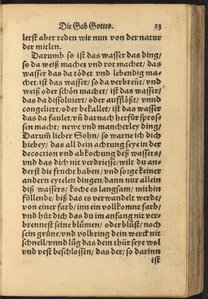 Die Gab Gottes. 23
lerſt aber reden wir nun von der natur
der mitlen.
Darumb ſo iſt das waſſer das ding/
ſo da weiß machet vnd rot machet / das
waſſer das da tödet vnd lebendig ma-
chet. iſt das waſſer / ſo da verbreũt/ vnd
weiß oder ſchön machet/ iſt das waſſer/
das da diſſoluiert/ oder aufflößt/ vnnd
congeliert/ oder bekaltet/ iſt das waſſer
das da faulet/ vñ darnach herfür ſproſ-
ſen machet/ newe vnd mancherley ding
Darum̃ lieber Sohn / ſo warne ich dich
hiebey / das all dein achtung ſeye in der
decoction vnd abkochung deß waſſers/
vnd das dich nit verdrieſſe/ wilt du an-
derſt die frucht haben/ vnd ſorge keiner
andern eytelen dingen/ dann nur allein
diß waſſers/ koche es langſam/ mithin
füllende/ biß das es verwandelt werde/
von einer farb/ inn ein vollkomne farb/
vnd hüt dich das du im anfang nit ver-
brenneſt ſeine blůmen/ oder blüſt/ noch
ſein grüne/ vnd volbring dein werck nit
ſchnell/ vnnd lůg das dein thür ſeye wol
vnd veſt beſchloſſen / das der / ſo darinn
iſt